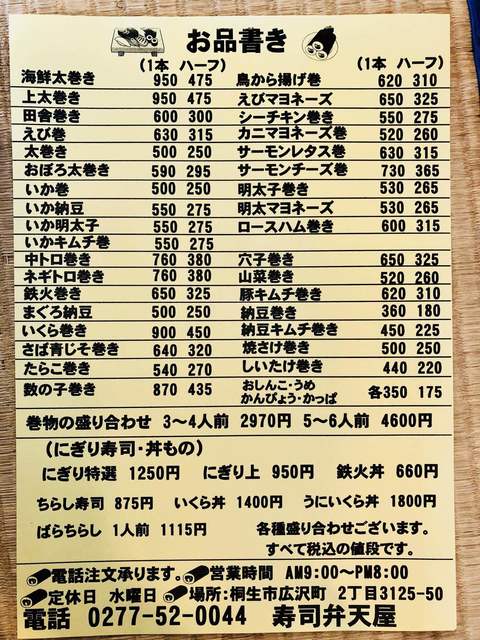 お品書き
(1本 ハーフ) (1本 ハーフ)
海鮮太巻き 950 475 鳥から揚げ巻 620 310
上太巻き 950 475 えびマヨネーズ 650 325
田舎巻き 600 300 シーチキン巻き 550 275
えび巻 630 315 カニマヨネーズ巻 520 260
太巻き 500 250 サーモンレタス巻 630 315
おぼろ太巻き 590 295 サーモンチーズ巻 730 365
いか巻 500 250 明太子巻き 530 265
いか納豆 550 275 明太マヨネーズ 530 265
いか明太子 550 275 ロースハム巻き 600 315
いかキムチ巻 550 275
中トロ巻き 760 380 穴子巻き 650 325
ネギトロ巻き 760 380 山菜巻き 520 260
鉄火巻き 650 325 豚キムチ巻き 620 310
まぐろ納豆 500 250 納豆巻き 360 180
いくら巻き 900 450 納豆キムチ巻き 450 225
さば青じそ巻き 640 320 焼さけ巻き 500 250
たらこ巻き 540 270 しいたけ巻き 440 220
数の子巻き 870 435 おしんこ・うめ かんぴょう・かっぱ 各350 175
巻物の盛り合わせ 3〜4人前 2970円 5〜6人前 4600円
(にぎり寿司・丼もの)
にぎり特選 1250円 にぎり上 950円 鉄火丼 660円
ちらし寿司 875円 いくら丼 1400円 うにいくら丼 1800円
ばらちらし 1人前 1115円 各種盛り合わせございます。
すべて税込の値段です。
電話注文承ります。 営業時間 AM9:00〜PM8:00
定休日 水曜日 場所:桐生市広沢町 2丁目3125-50
電話 0277-52-0044 寿司弁天屋